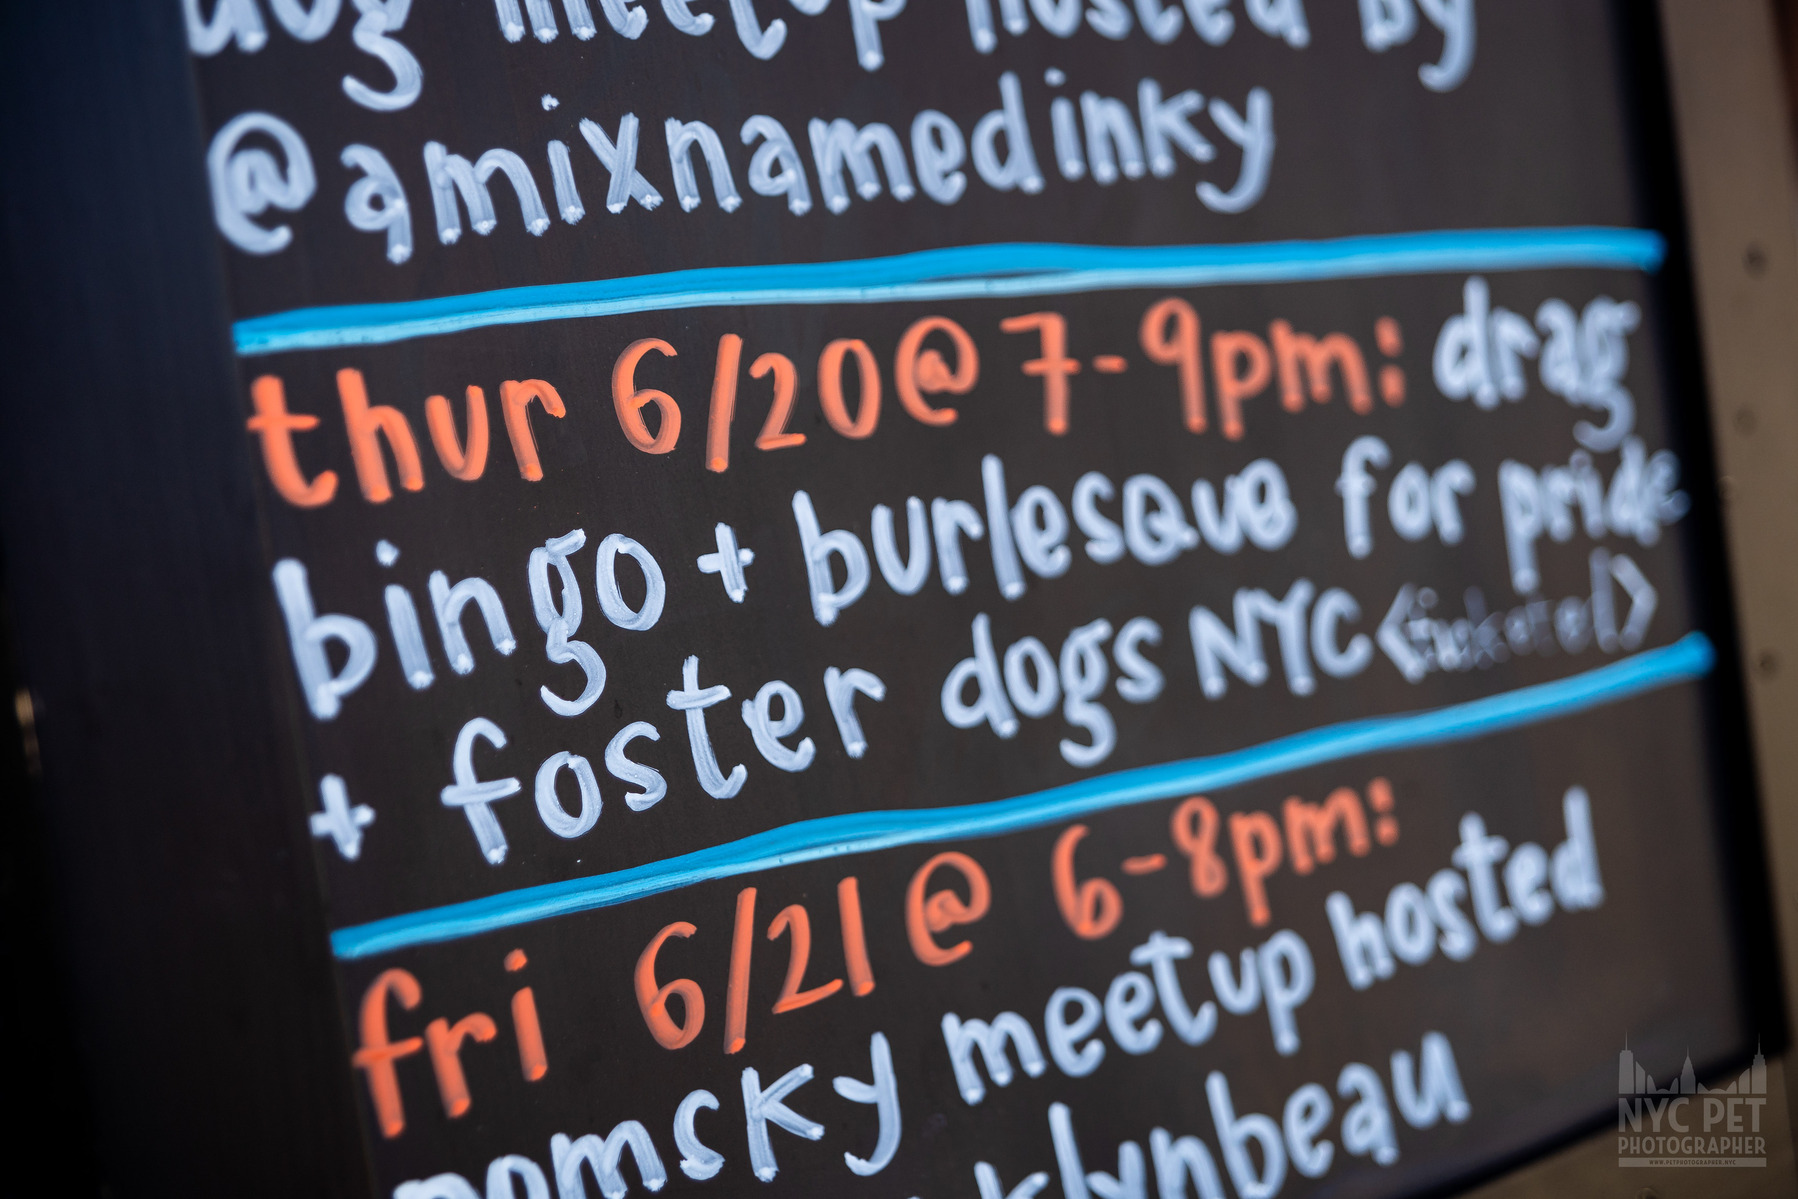 dog meetup hosted by
@amixnamedinky
thur 6/20@7-9pm: drag
bingo + burlesque for pride
+ foster dogs NYC <ticketed>
fri 6/21@ 6-8pm:
pomsky meetup hosted
klynbeau
NYC PET
PHOTOGRAPHER
WWW.PETPHOTOGRAPHER.NYC